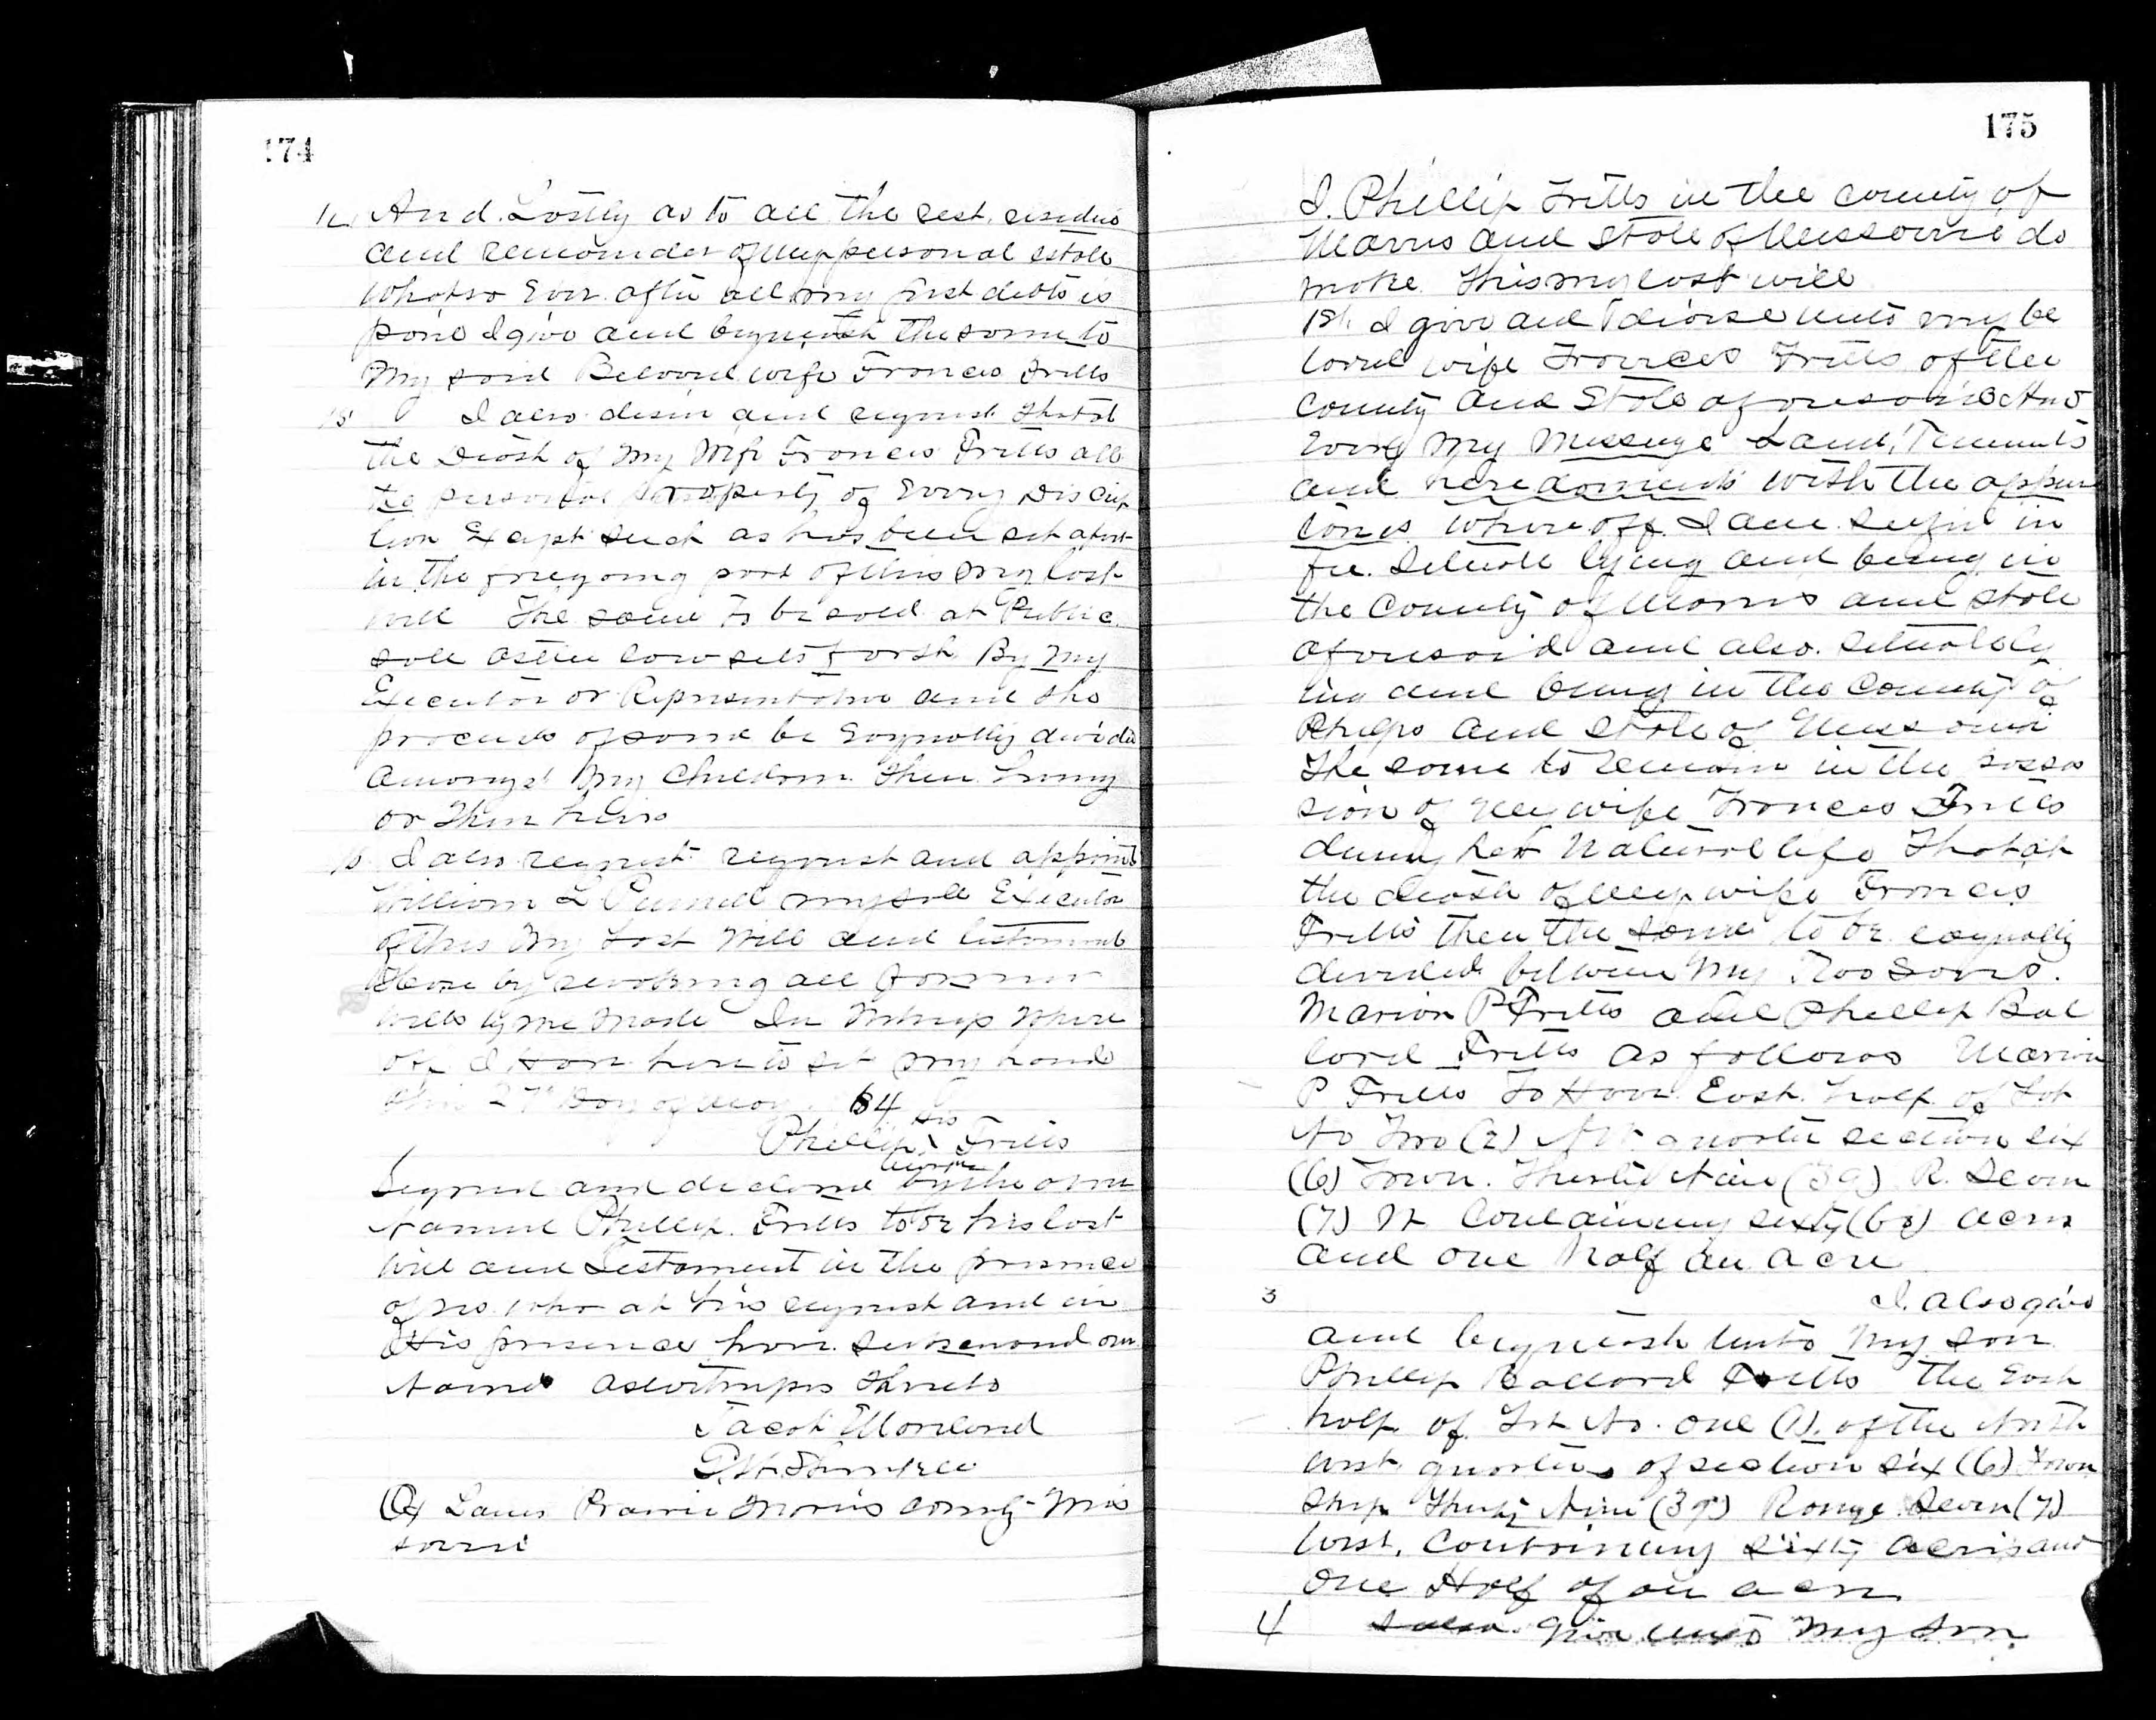 174
And Lastly as to all the rest, residue
and remainder of my personal estate
whatso Ever after all my just debts is
paid I give and bequeath the same to
My said Beloved wife Frances Fritts
I also desire and request that at
the Death of My Wife Frances Fritts all
the personal property of Every Discrip
tion Except such as has been set apart
in the foregoing part of this my last
will The same to be sold at Public
sale as the law sets forth By My
Executor or Representative and the
proceeds of same be Eaqually divided
amongst My Children then living
or Their heirs
I also request request and appoint
William L my sole Executor
of this My Last Will and testament
Here by revoking all former
wills by me Made In Witness Where
off I Have here to set my hand
this 27th Day of May 84
his
Phillip x Fritts
Signed and declared by the above
Named Phillip Fritts to be his last
will and Testament in the presence
of us who at his request and in
His presence have our
Names as witnesses thereto
Jacob Moreland
Of Lanes Prairie Maries County Mis
souri
175
I. Phillip Fritts in the county of
Maries and State of Missourie do
make this my last will
1st. I give and Devise unto my be
loved wife Frances Fritts of the
county and State aforesaid
my Messuage Land, Tenements
and heredaments with the appur
tances where off I am seized in
fee. Situate lying and being in
the County of Maries and State
aforesaid and also situate ly
ing and being in the County of
Phelps and State of Missouri
The same to remain in the posses
sion of my wife Frances Fritts
during her Natural life That at
the death of my wife Frances
Fritts then the same to be eaqually
divided between My Two Sons.
Marion P Fritts and Phillip Bal
lard Fritts as follows Marion
P Fritts To Have East half of Lot
No Two (2) N W quarter section six
(6) Town. Thirty Nine (39) R. Seven
(7) W Containing sixty (60) acres
and one half an acre
3
I. also give
and bequeath unto My son
Phillip Ballard Fritts The East
half of Lot No. one (1). of the North
west quarter of section six (6) Town
Ship Thirty Nine (39) Range Seven (7)
West. Containing sixty acres and
One Half of an acre
4 I also give unto My Son